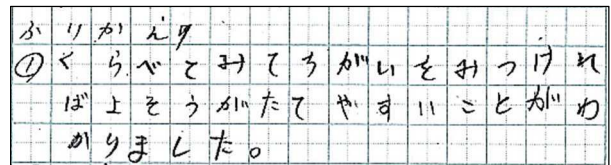 ふりかえり
① くらべてみてちがいをみつけれ
ば上そうがたてやすいことがわ
かりました。